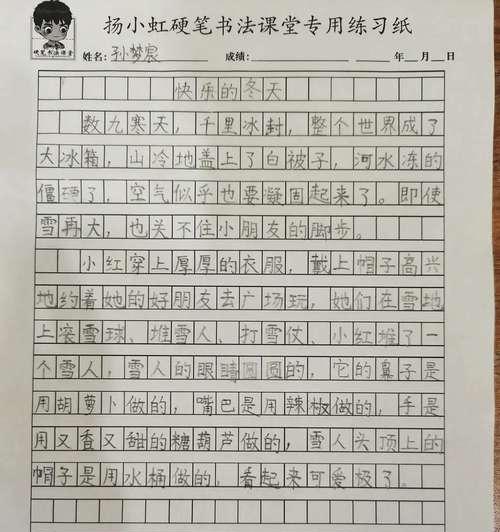 扬小虹硬笔书法课堂专用练习纸
硬笔书法课堂
姓名：孙梦宸 成绩：年 月 日
快乐的冬天
数九寒天，千里冰封，整个世界成了
大冰箱，山冷地盖上了白被子，河水冻的
僵硬了，空气似乎也要凝固起来了。即使
雪再大，也关不住小朋友的脚步。
小红穿上厚厚的衣服，戴上帽子高兴
地约着她的好朋友去广场玩，她们在雪地
上滚雪球、堆雪人、打雪仗、小红堆了一
个雪人，雪人的眼睛圆圆的，它的鼻子是
用胡萝卜做的，嘴巴是用辣椒做的，手是
用又香又甜的糖葫芦做的，雪人头顶上的
帽子是用水桶做的，看起来可爱极了。